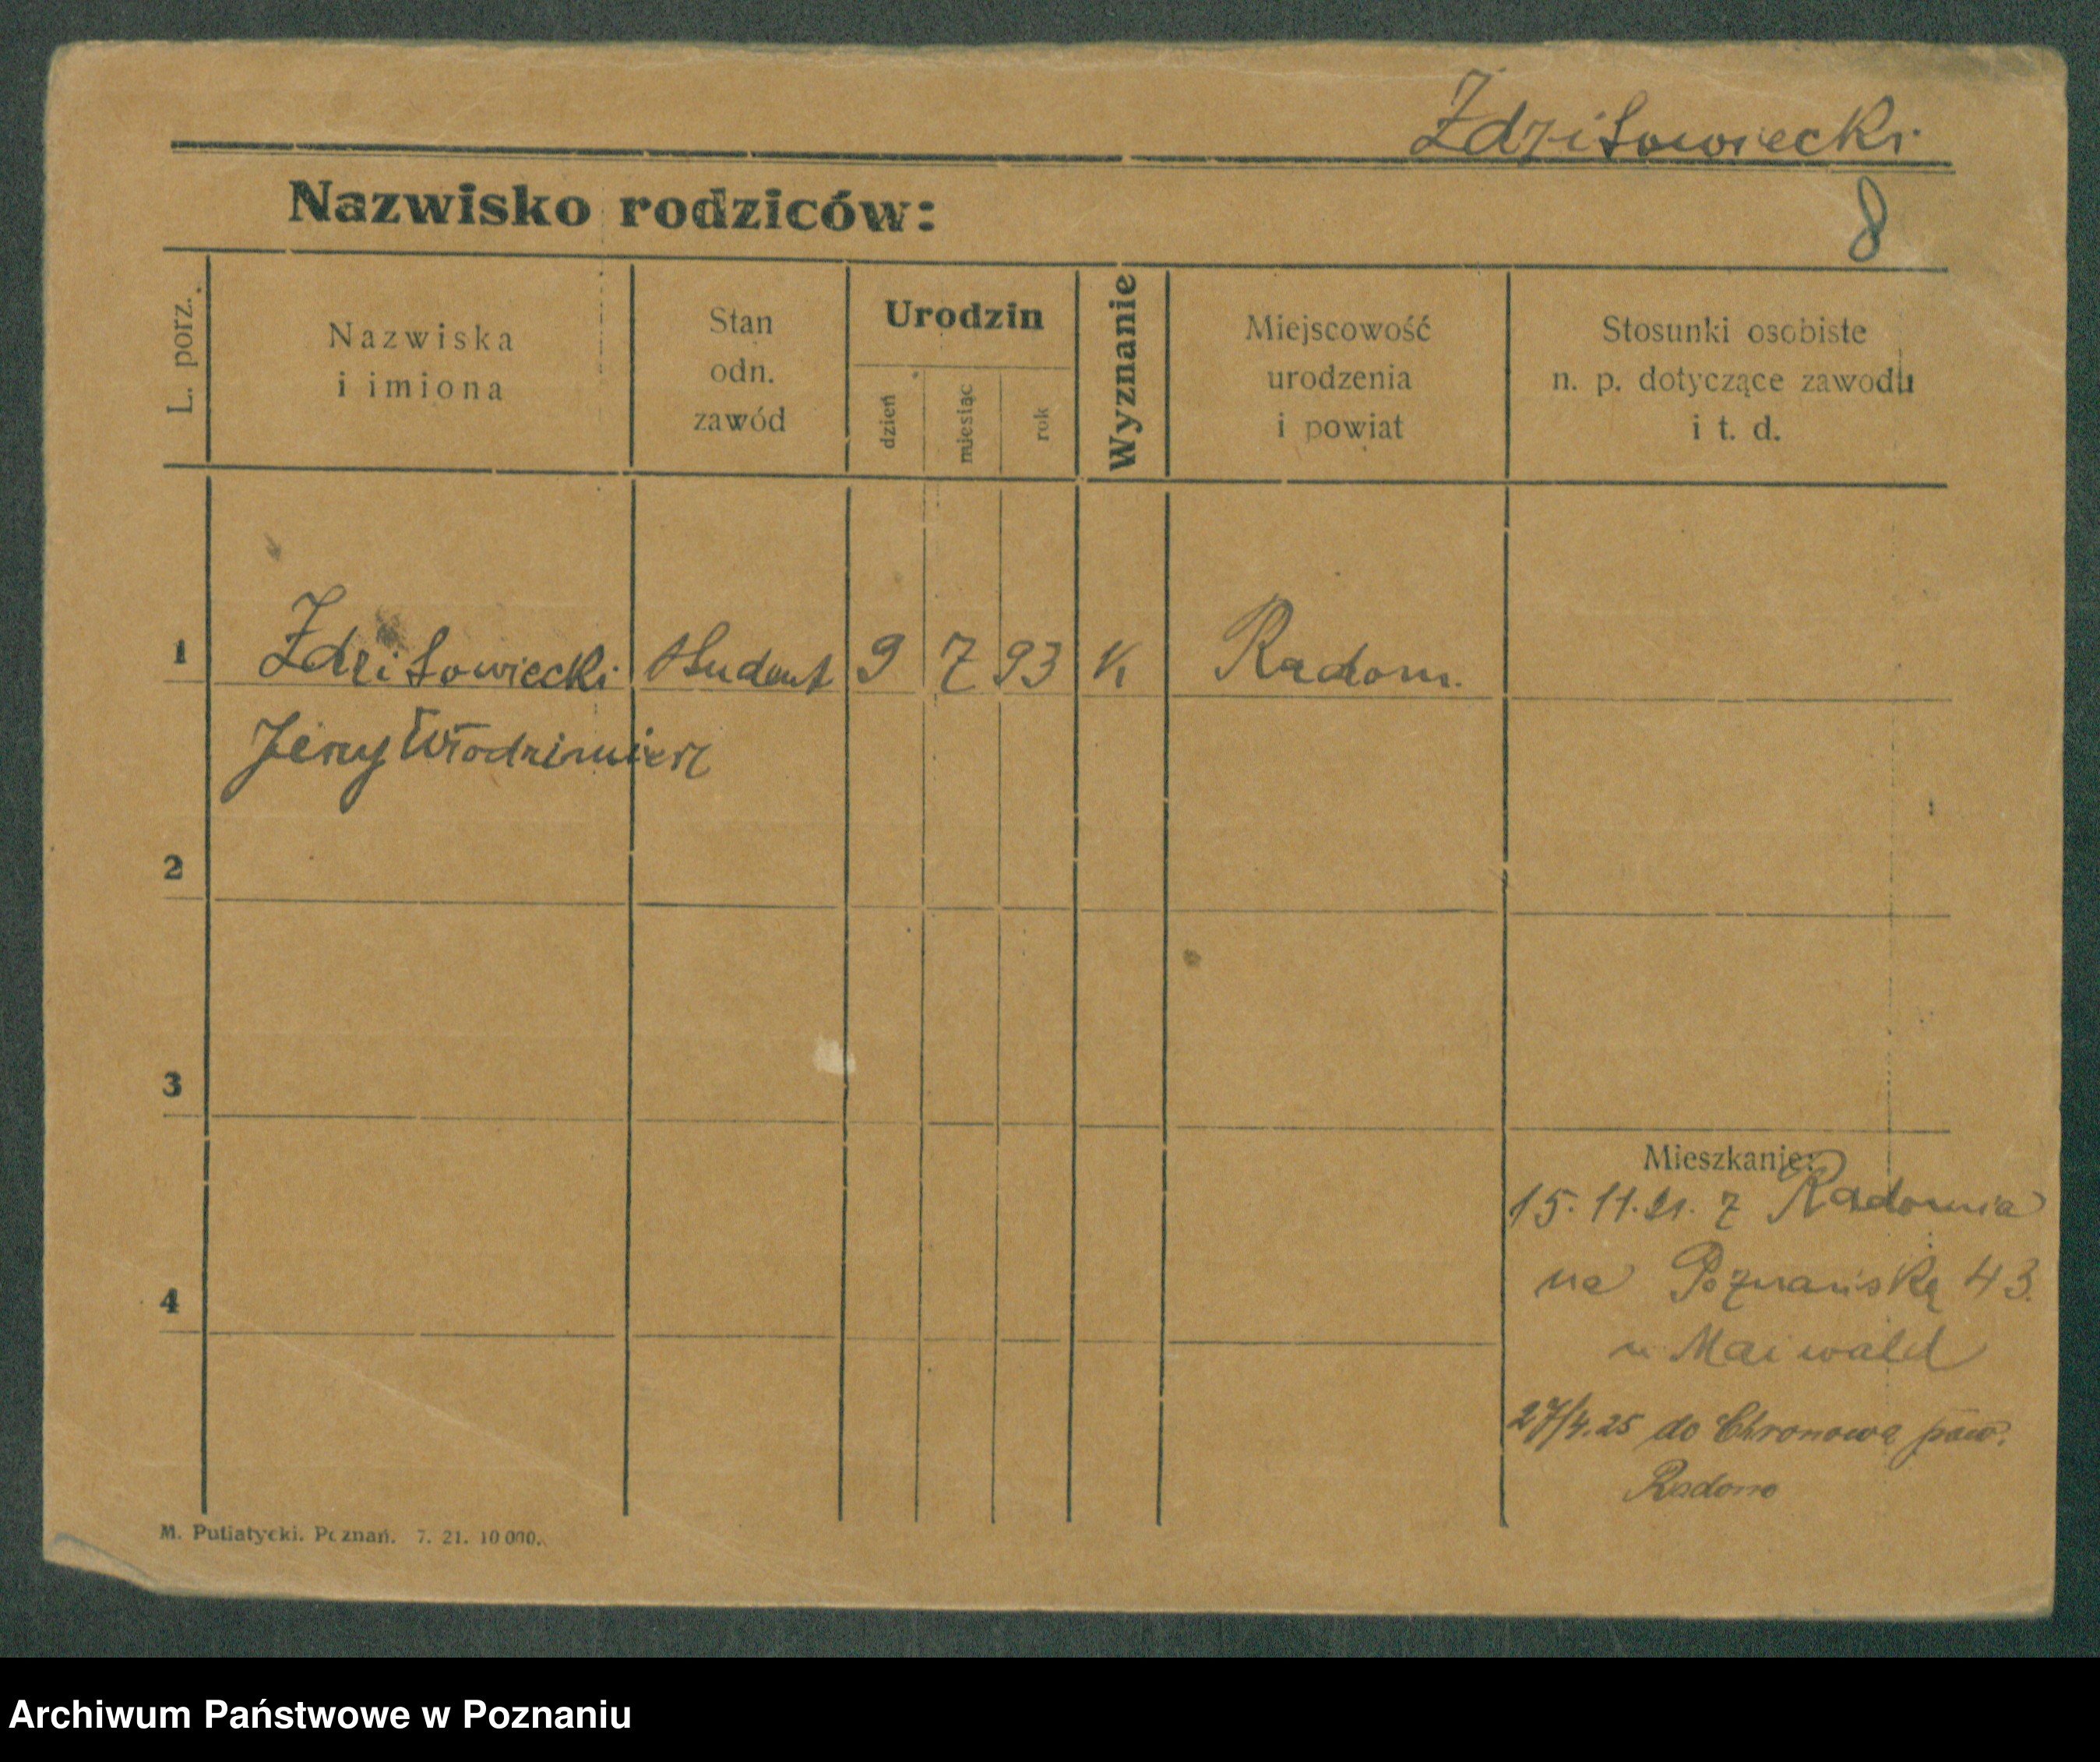 Zdziłowiecki
Nazwisko rodziców:
8
L. porz.
Nazwiska
i imiona
Stan
odn.
zawód
Urodzin
dzień
miesiąc
rok
Wyznanie
Miejscowość
urodzenia
i powiat
Stosunki osobiste
n. p. dotyczące zawodu
i t. d.
1 Zdziłowiecki student 9 7 93 K Radom.
Jerzy Włodzimierz
2
3
Mieszkanie:
15. 11. 21. z Radomia
na Poznańską 43.
u Maiwald
4
27/4.25 do Chronowa pow.
Radom
M. Putiatycki. Poznań. 7. 21. 10 000.
Archiwum Państwowe w Poznaniu